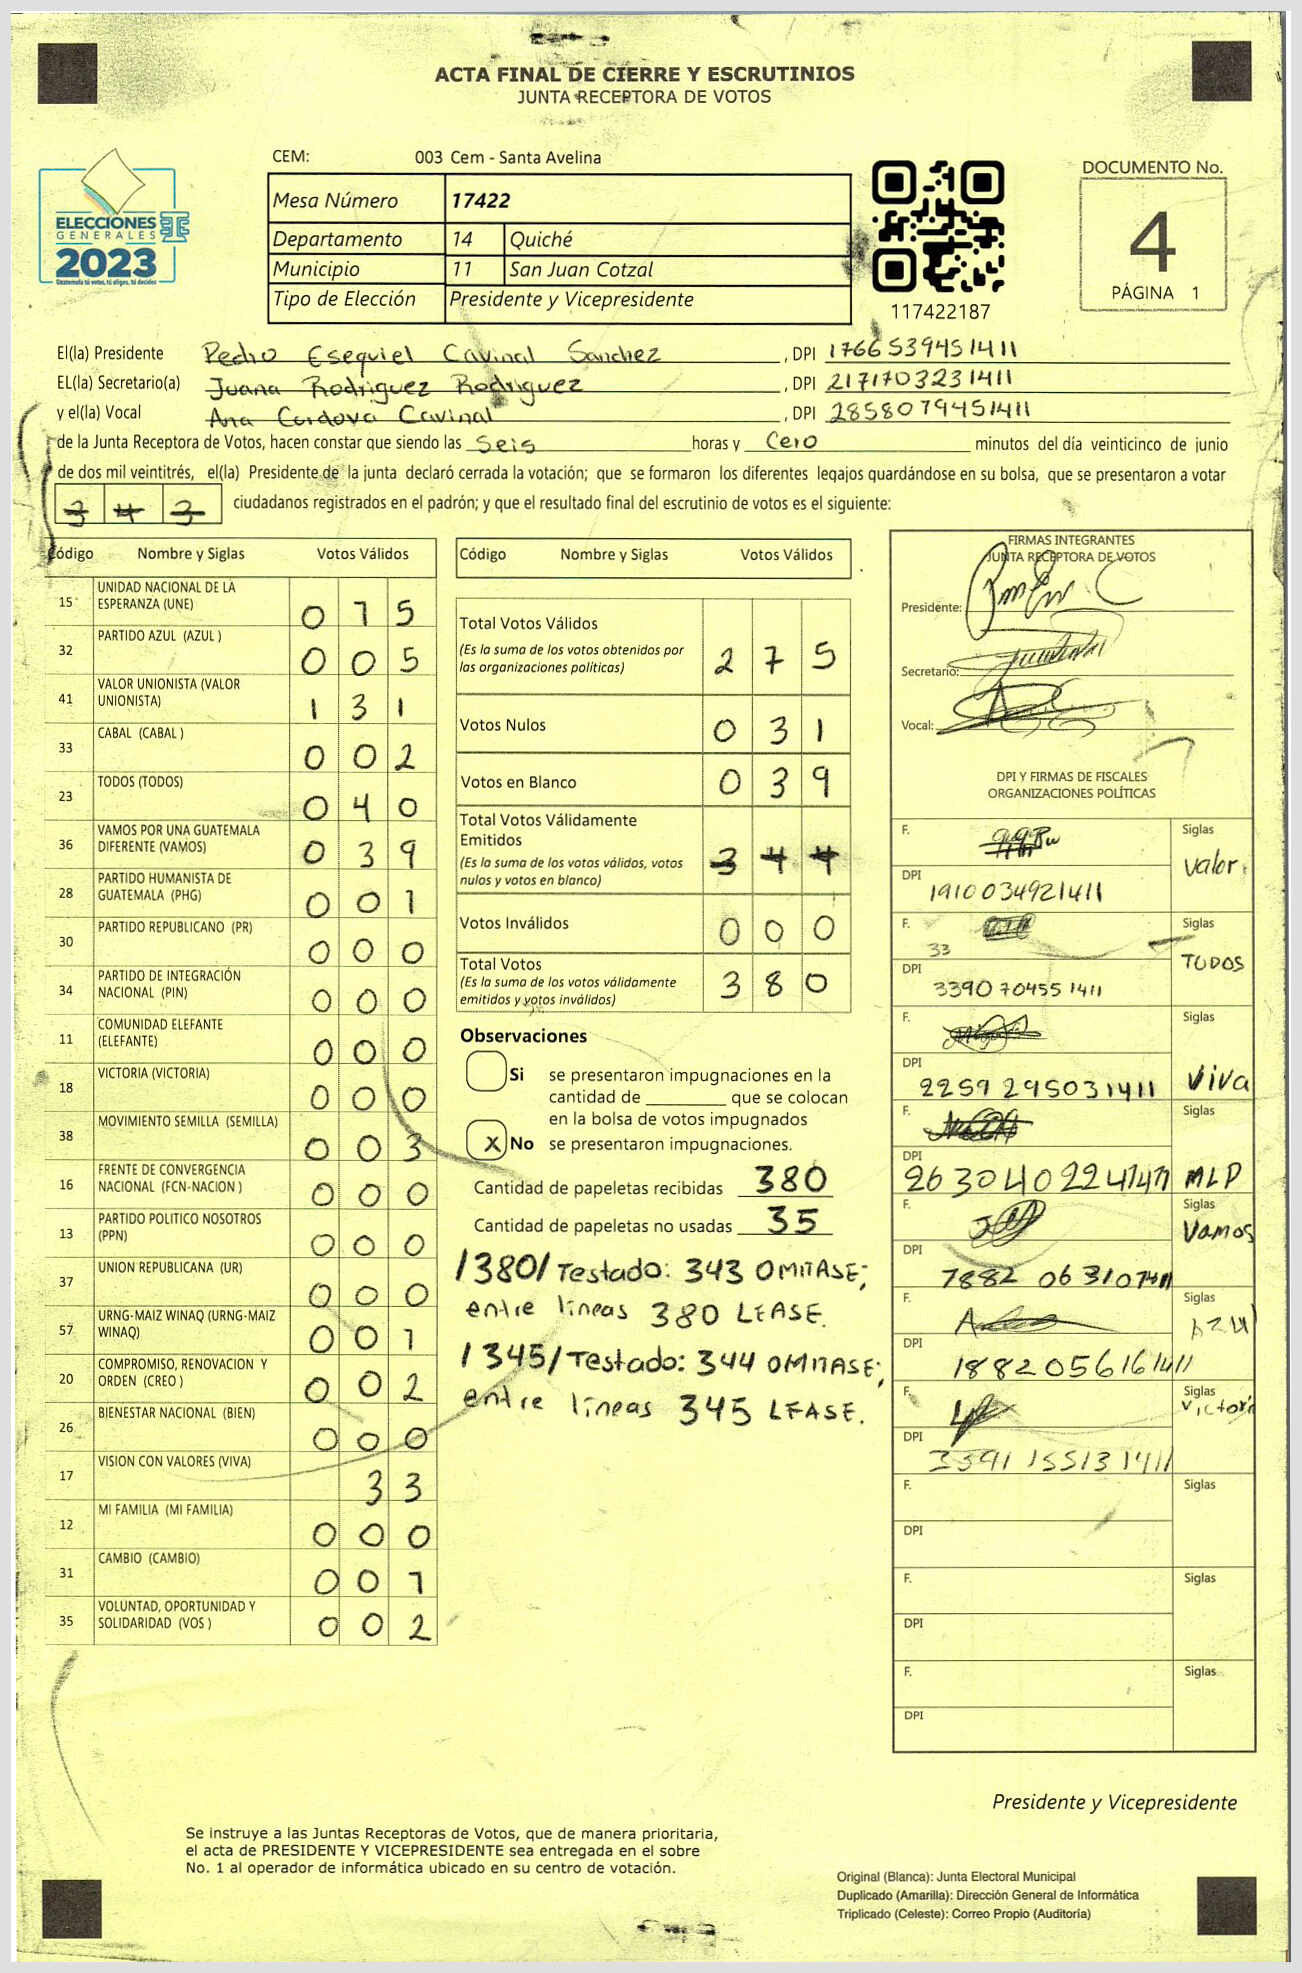 ACTA FINAL DE CIERRE Y ESCRUTINIOS
JUNTA RECEPTORA DE VOTOS
ELECCIONES
GENERALES
2023
CEM: 003 Cem - Santa Avelina
Mesa Número 17422
Departamento 14 Quiché
Municipio 11 San Juan Cotzal
Tipo de Elección Presidente y Vicepresidente
117422187
DOCUMENTO No.
4
PÁGINA 1
El(la) Presidente Pedro Esequiel Cavinal Sanchez, DPI 1766539451411
EL(la) Secretario(a) Juana Rodriguez Rodriguez, DPI 2171703231411
y el(la) Vocal Ana Cordova Cavinal, DPI 2858079451411
de la Junta Receptora de Votos, hacen constar que siendo las Seis horas y Cero minutos del día veinticinco de junio
de dos mil veintitrés, el(la) Presidente de la junta declaró cerrada la votación; que se formaron los diferentes legajos quardándose en su bolsa, que se presentaron a votar
3 4 3 ciudadanos registrados en el padrón; y que el resultado final del escrutinio de votos es el siguiente:
Código Nombre y Siglas Votos Válidos
15 UNIDAD NACIONAL DE LA
ESPERANZA (UNE) 0 7 5
32 PARTIDO AZUL (AZUL ) 0 0 5
41 VALOR UNIONISTA (VALOR
UNIONISTA) 1 3 1
33 CABAL (CABAL ) 0 0 2
23 TODOS (TODOS) 0 4 0
36 VAMOS POR UNA GUATEMALA
DIFERENTE (VAMOS) 0 3 9
28 PARTIDO HUMANISTA DE
GUATEMALA (PHG) 0 0 1
30 PARTIDO REPUBLICANO (PR) 0 0 0
34 PARTIDO DE INTEGRACIÓN
NACIONAL (PIN) 0 0 0
11 COMUNIDAD ELEFANTE
(ELEFANTE) 0 0 0
18 VICTORIA (VICTORIA) 0 0 0
38 MOVIMIENTO SEMILLA (SEMILLA) 0 0 3
16 FRENTE DE CONVERGENCIA
NACIONAL (FCN-NACION ) 0 0 0
13 PARTIDO POLITICO NOSOTROS
(PPN) 0 0 0
37 UNION REPUBLICANA (UR) 0 0 0
57 URNG-MAIZ WINAQ (URNG-MAIZ
WINAQ) 0 0 1
20 COMPROMISO, RENOVACION Y
ORDEN (CREO ) 0 0 2
26 BIENESTAR NACIONAL (BIEN) 0 0 0
17 VISION CON VALORES (VIVA) 3 3
12 MI FAMILIA (MI FAMILIA) 0 0 0
31 CAMBIO (CAMBIO) 0 0 1
35 VOLUNTAD, OPORTUNIDAD Y
SOLIDARIDAD (VOS ) 0 0 2
Código Nombre y Siglas Votos Válidos
Total Votos Válidos
(Es la suma de los votos obtenidos por
las organizaciones políticas) 2 7 5
Votos Nulos 0 3 1
Votos en Blanco 0 3 9
Total Votos Válidamente
Emitidos
(Es la suma de los votos válidos, votos
nulos y votos en blanco) 3 4 4
Votos Inválidos 0 0 0
Total Votos
(Es la suma de los votos válidamente
emitidos y votos inválidos) 3 8 0
Observaciones
Si se presentaron impugnaciones en la
cantidad de ________ que se colocan
en la bolsa de votos impugnados
X No se presentaron impugnaciones.
Cantidad de papeletas recibidas 380
Cantidad de papeletas no usadas 35
/380/ Testado: 343 OMITASE;
entre lineas 380 LEASE.
/345/ Testado: 344 OMITASE;
entre lineas 345 LEASE.
FIRMAS INTEGRANTES
JUNTA RECEPTORA DE VOTOS
Presidente:
Secretario:
Vocal:
DPI Y FIRMAS DE FISCALES
ORGANIZACIONES POLÍTICAS
F. Siglas
Valor
DPI 1910034921411
F. Siglas
33 TODOS
DPI 3390704551411
F. Siglas
DPI 2259295031411 Viva
F. Siglas
DPI MLP
F. Siglas
Vamos
DPI
F. Siglas
Azul
DPI 1882056161411
F. Siglas
Victoria
DPI 3391155131411
F. Siglas
DPI
F. Siglas
DPI
F. Siglas
DPI
Presidente y Vicepresidente
Se instruye a las Juntas Receptoras de Votos, que de manera prioritaria,
el acta de PRESIDENTE Y VICEPRESIDENTE sea entregada en el sobre
No. 1 al operador de informática ubicado en su centro de votación.
Original (Blanca): Junta Electoral Municipal
Duplicado (Amarilla): Dirección General de Informática
Triplicado (Celeste): Correo Propio (Auditoría)